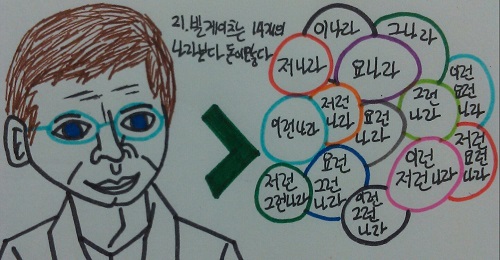 21. 빌게이츠는 14개의
나라보다 돈이많다
이나라
그나라
저나라
요나라
이런
요런
나라
이런나라
저런
나라
요런
나라
그런
나라
저런
요런
나라
이런
저런나라
저런
그런나라
요런
그런
나라
이런
그런
나라